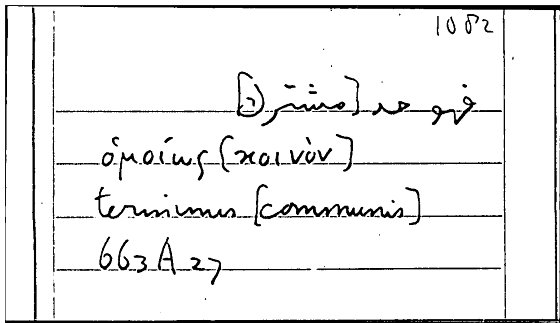 1082
فهو حد [مشتر(ك)]
ὁμοίως [κοινὸν]
terminus [communis]
663A27